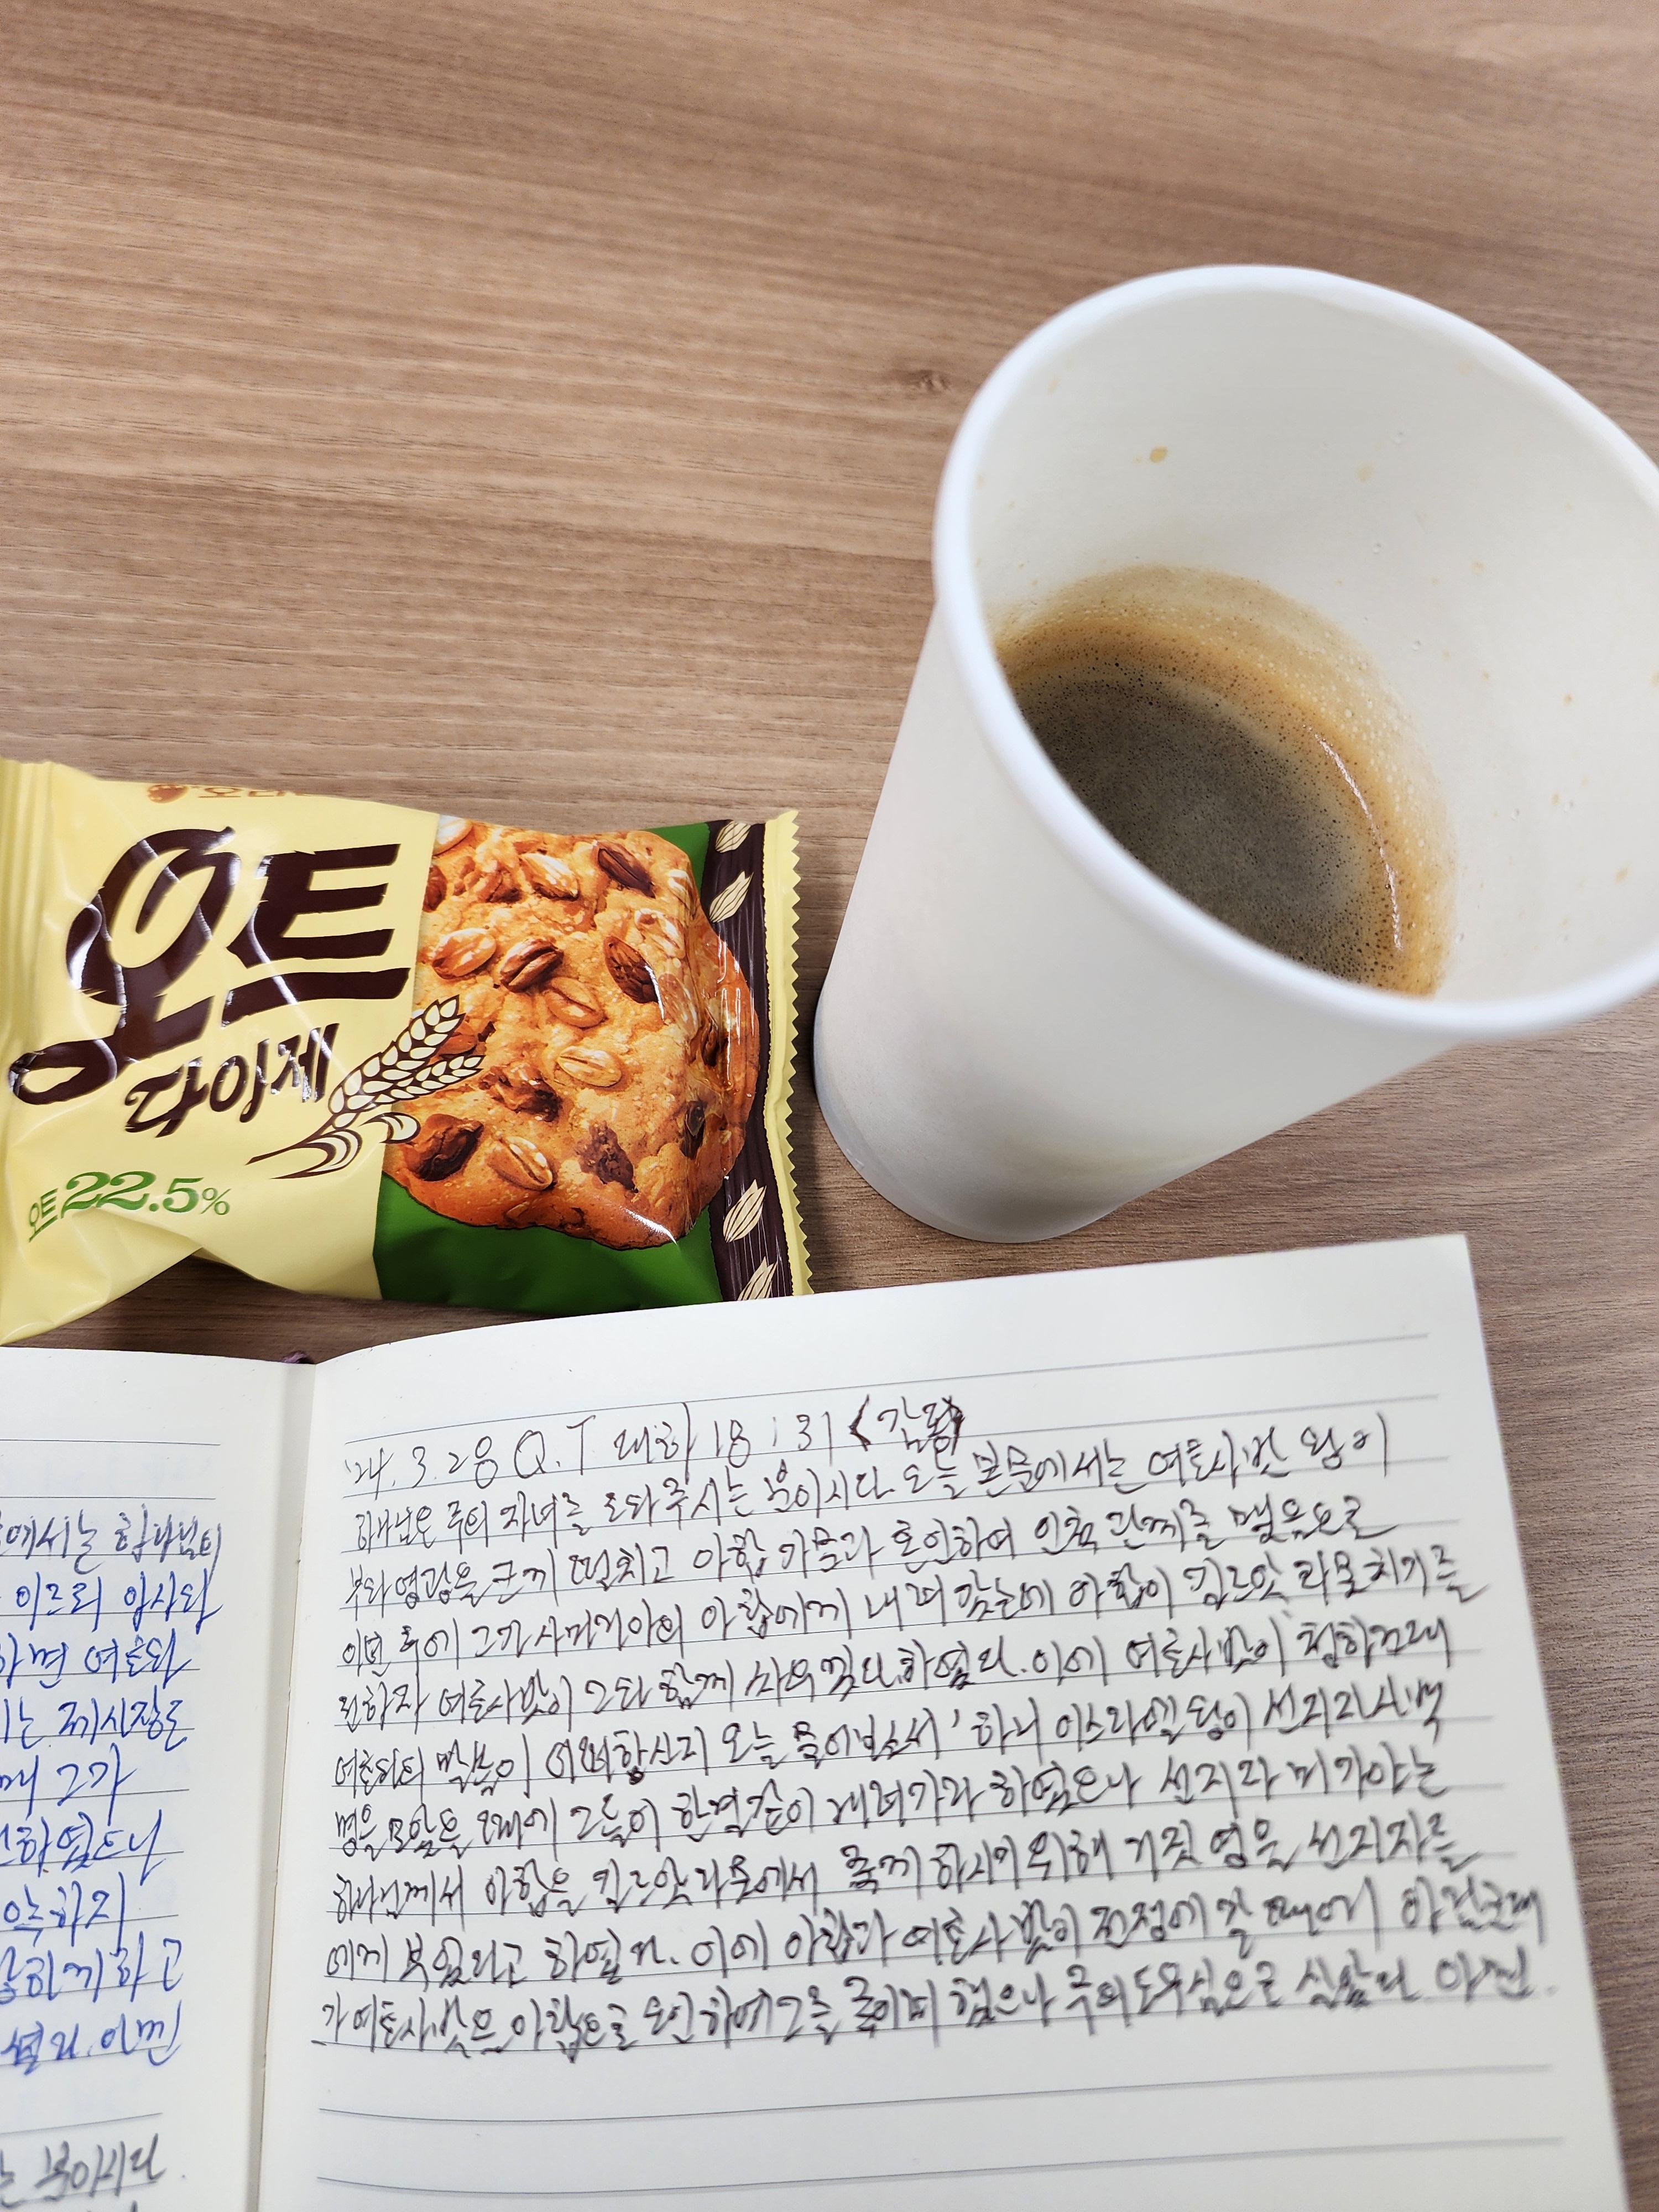 오리온
오트
다이제
오트 22.5%
'24. 3. 28 Q.T 대하 18 : 31 <간략>
하나님은 주의 자녀를 도와주시는 분이시다. 오늘 본문에서는 여호사밧 왕이
부와 영광을 크게 떨치고 아합 가문과 혼인하여 인척 관계를 맺음으로
이년 후에 그가 사마리아의 아합에게 내려 갔는데 아합이 길르앗 라못 치기를
권하자 여호사밧이 그와 함께 싸우겠다 하였다. 이에 여호사밧이 청하건대
여호와의 말씀이 어떠하신지 오늘 물어보소서' 하니 이스라엘 왕이 선지자 사백
명을 모았을 때에 그들이 한결같이 올려가라 하였으나 선지자 미가야는
하나님께서 아합을 길르앗 라못에서 죽게 하시기 위해 거짓 영을 선지자들
에게 부었다고 하였다. 이에 아합과 여호사밧이 전쟁에 갈 때에 아람군대
가 여호사밧을 아합으로 오인하여 그를 죽이려 했으나 주의 도우심으로 살았다. 아멘.
에서는 하나님의
이르되
하면 여호와
는 제사장은
그가
하였으나
하지
하게 하고
아멘
는 분이시다.